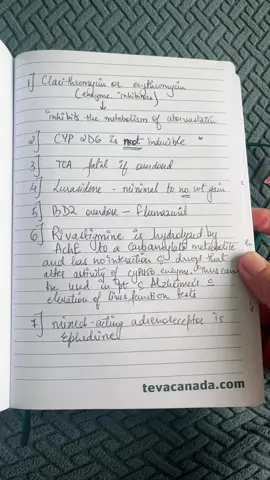 1] Clarithromycin or erythromycin
(enzyme inhibitors)
↓
inhibits the metabolism of atorvastatin
2] CYP 2D6 is not inducible
3] TCA fatal if overdosed
4] Lurasidone - minimal to no wt gain
5] BDZ overdose - flumazenil
6] Rivastigmine is hydrolyzed by
AchE to a carbamylate metabolite
and has no interaction c drugs that
alter activity of cyp450 enzyme. Thus can
be used in pt c Alzheimer's c
elevation of liver function tests
7] mixed-acting adrenoreceptor is
Ephedrine
tevacanada.com